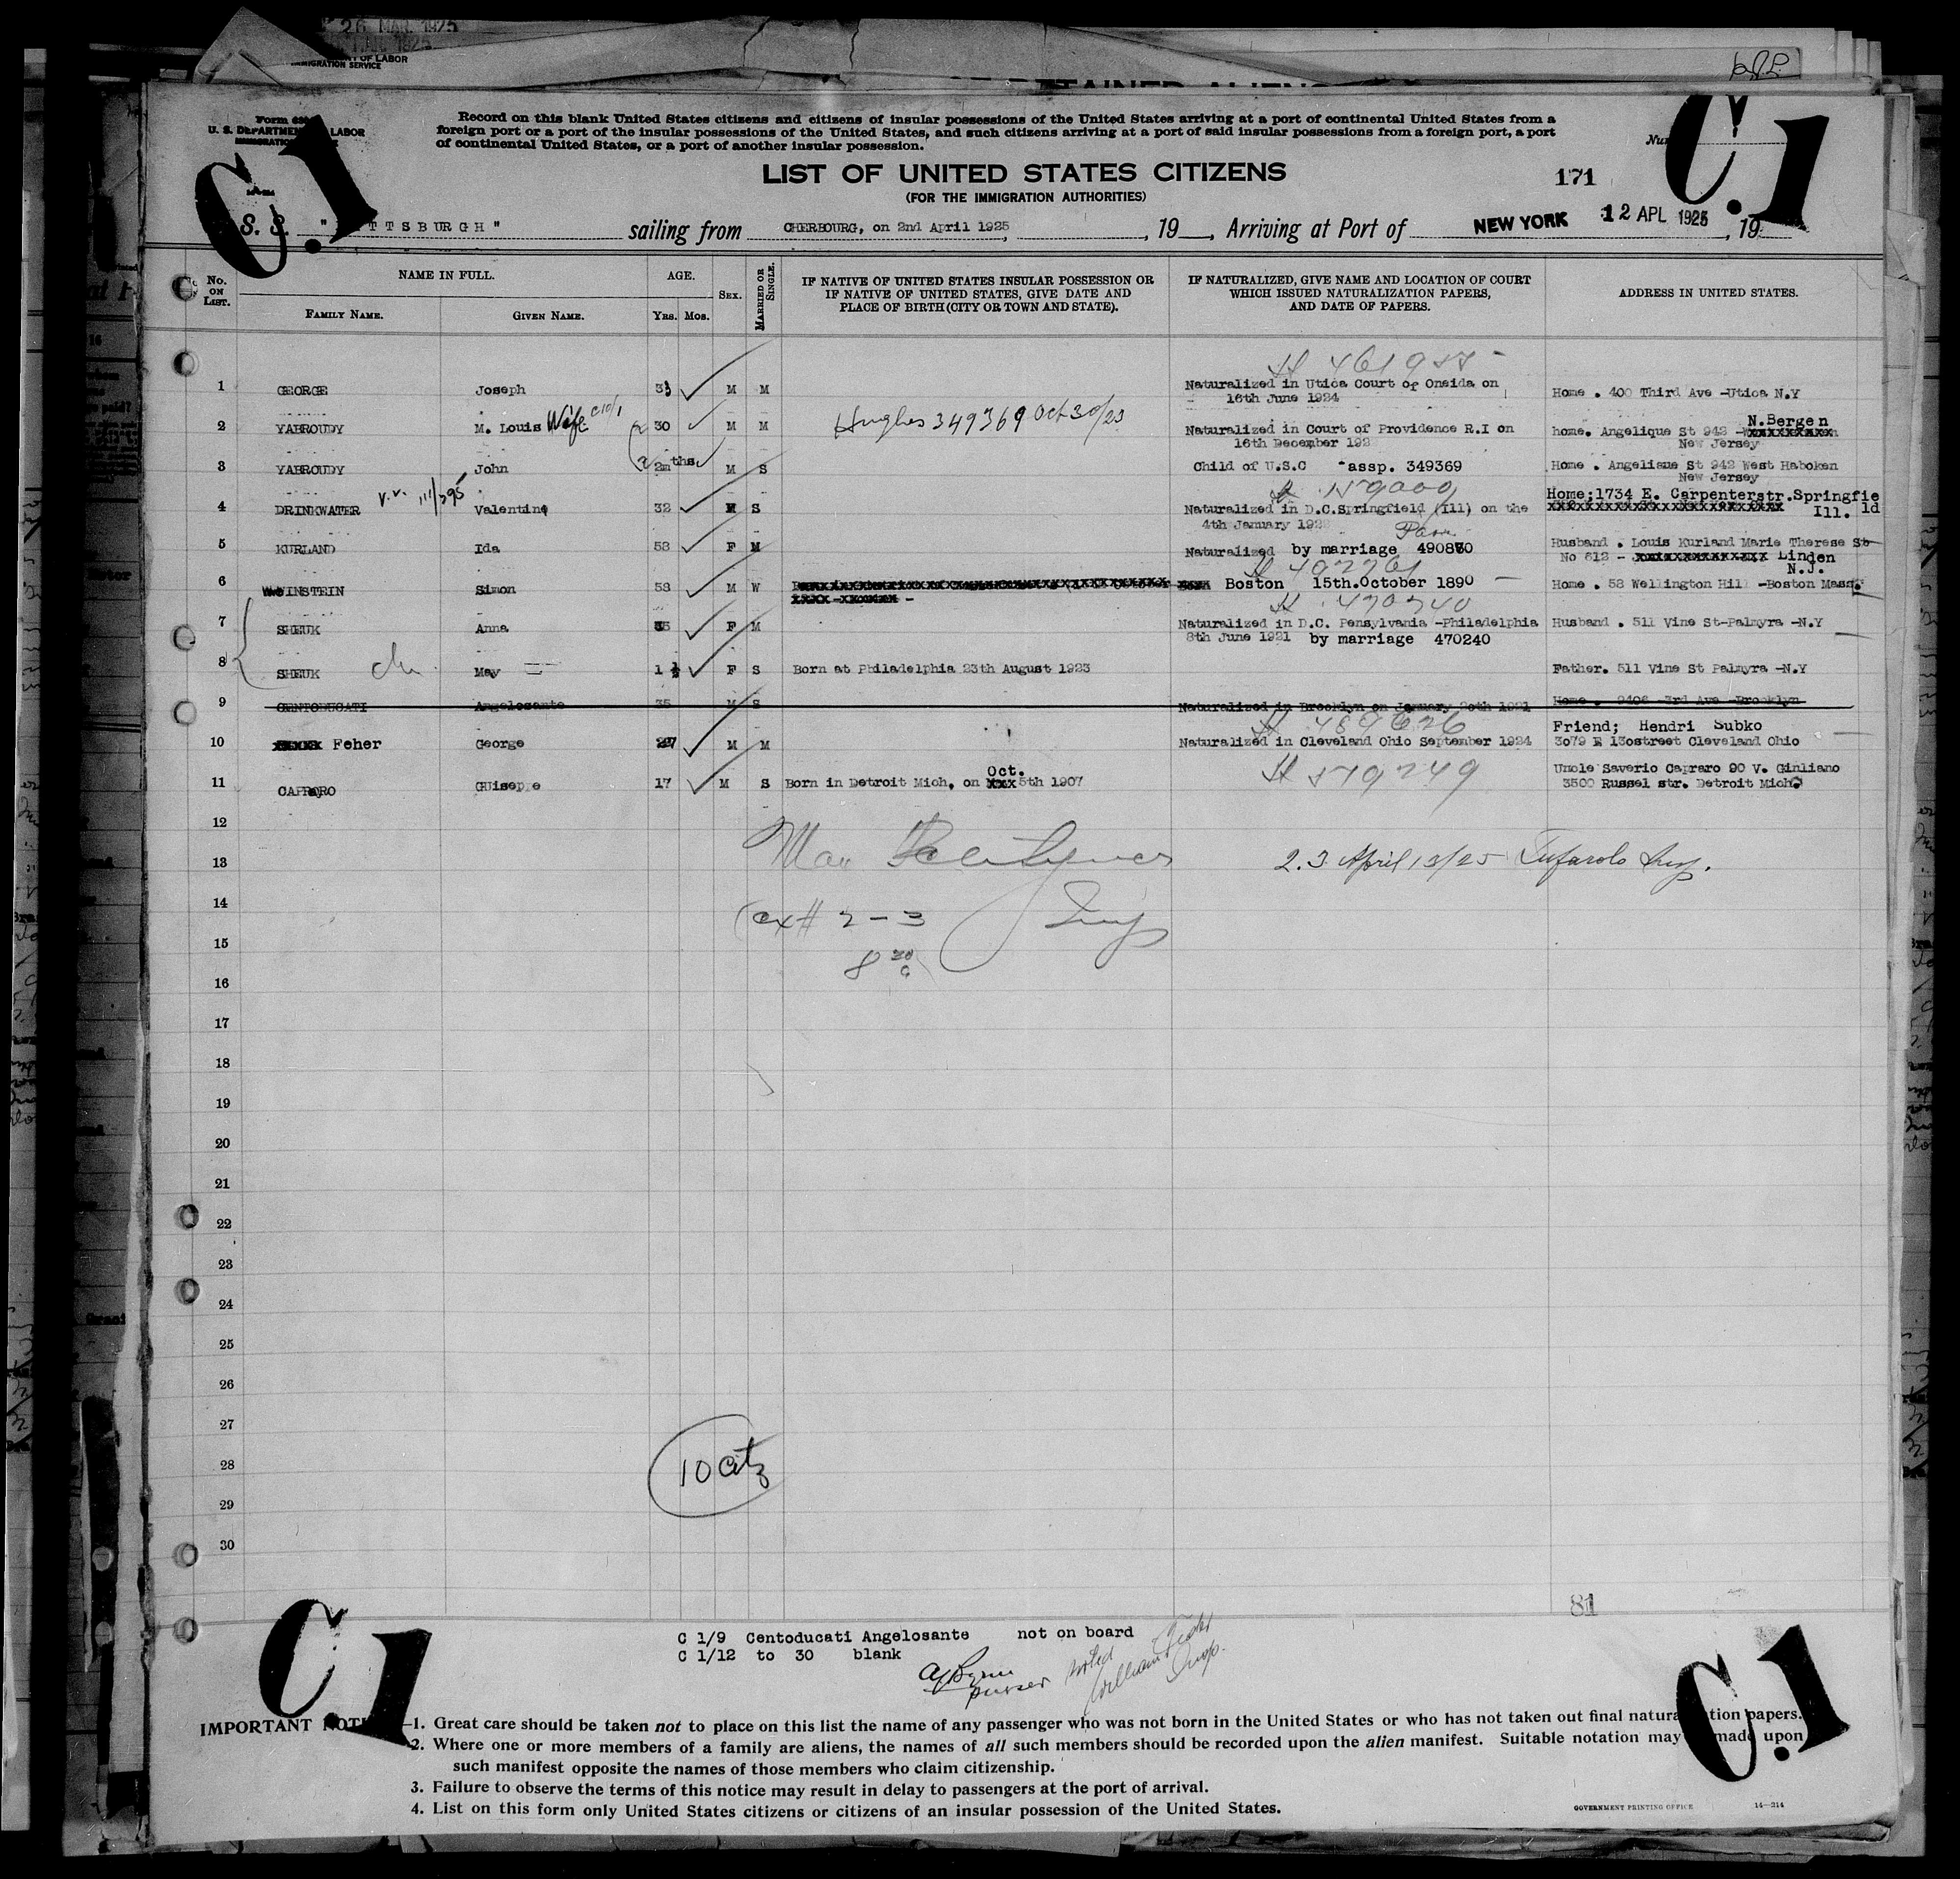 26 MAR 1925
OF LABOR
IMMIGRATION SERVICE
TAINED ALIENS
Form 630
U. S. DEPARTMENT LABOR
Record on this blank United States citizens and citizens of insular possessions of the United States arriving at a port of continental United States from a
foreign port or a port of the insular possessions of the United States, and such citizens arriving at a port of said insular possessions from a foreign port, a port
of continental United States, or a port of another insular possession.
C.1
C.1
LIST OF UNITED STATES CITIZENS
171
(FOR THE IMMIGRATION AUTHORITIES)
S. S. " TTSBURGH " sailing from CHERBOURG, on 2nd April 1925, 19 , Arriving at Port of NEW YORK 12 APL 1925, 19
No. ON LIST. NAME IN FULL. AGE. SEX. MARRIED OR SINGLE. IF NATIVE OF UNITED STATES INSULAR POSSESSION OR IF NATIVE OF UNITED STATES, GIVE DATE AND PLACE OF BIRTH (CITY OR TOWN AND STATE). IF NATURALIZED, GIVE NAME AND LOCATION OF COURT WHICH ISSUED NATURALIZATION PAPERS, AND DATE OF PAPERS. ADDRESS IN UNITED STATES.
FAMILY NAME. GIVEN NAME. YRS. MOS.
1 GEORGE Joseph 33 M M Naturalized in Utica Court of Oneida on Home . 400 Third Ave -Utica N.Y
16th June 1924
2 YABROUDY M. Louis Wife 30 M M Hughes 349369 Oct 30/23 Naturalized in Court of Providence R.I on home. Angelique St 942 - N.Bergen
16th December 192 New Jersey
3 YABROUDY John 2mths M S Child of U.S.C assp. 349369 Home . Angelique St 942 West Haboken
New Jersey
4 DRINKWATER V.V. 111/295 Valentine 32 M S Naturalized in D.C.Springfield (Ill) on the Home;1734 E. Carpenterstr.Springfie
4th January 192 Ill. ld
5 KURLAND Ida 53 F M Naturalized by marriage 490870 Husband . Louis Kurland Marie Therese St
No 612 - Linden
N.J.
6 WEINSTEIN Simon 58 M W Boston 15th.October 1890 Home . 58 Wellington Hill -Boston Mass.
H 470240
7 SHEUK Anna 35 F M Naturalized in D.C. Pensylvania -Philadelphia Husband . 511 Vine St-Palmyra -N.Y
8th June 1921 by marriage 470240
8 SHEUK May 1 F S Born at Philadelphia 23th August 1923 Father. 511 Vine St Palmyra -N.Y
9 CENTODUCATI Angelosante 35 M S Naturalized in Brooklyn on January 20th 1921 Home . 9406 -3rd Ave -Brooklyn
H 489626 Friend; Hendri Subko
10 Feher George 27 M M Naturalized in Cleveland Ohio September 1924 3o79 E 13ostreet Cleveland Ohio
Oct. Uncle Saverio Capraro 90 V. Giuliano
11 CAPRARO GUiseppe 17 M S Born in Detroit Mich. on xxx 5th 1907 3500 Russel str. Detroit Mich.
12
13 2.3 April 13/25 Tufarolo Insp.
14 2-3 Insp
15
16
17
18
19
20
21
22
23
24
25
26
27
28 10 citz
29
30
81
C 1/9 Centoducati Angelosante not on board
C 1/12 to 30 blank
purser noted William Insp.
C1
C.1
IMPORTANT NOTI —1. Great care should be taken not to place on this list the name of any passenger who was not born in the United States or who has not taken out final natura tion papers.
2. Where one or more members of a family are aliens, the names of all such members should be recorded upon the alien manifest. Suitable notation may made upon
such manifest opposite the names of those members who claim citizenship.
3. Failure to observe the terms of this notice may result in delay to passengers at the port of arrival.
4. List on this form only United States citizens or citizens of an insular possession of the United States.
GOVERNMENT PRINTING OFFICE 14—214